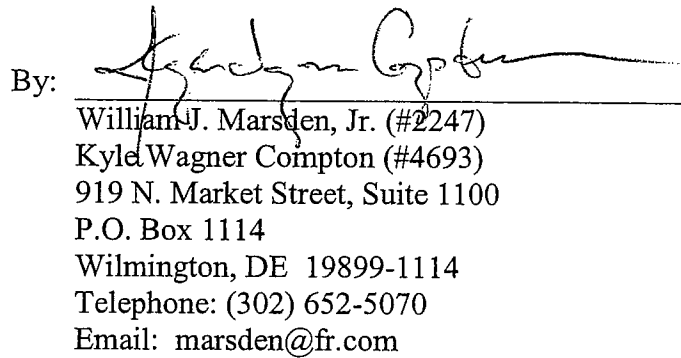 By:
William J. Marsden, Jr. (#2247)
Kyle Wagner Compton (#4693)
919 N. Market Street, Suite 1100
P.O. Box 1114
Wilmington, DE 19899-1114
Telephone: (302) 652-5070
Email: marsden@fr.com